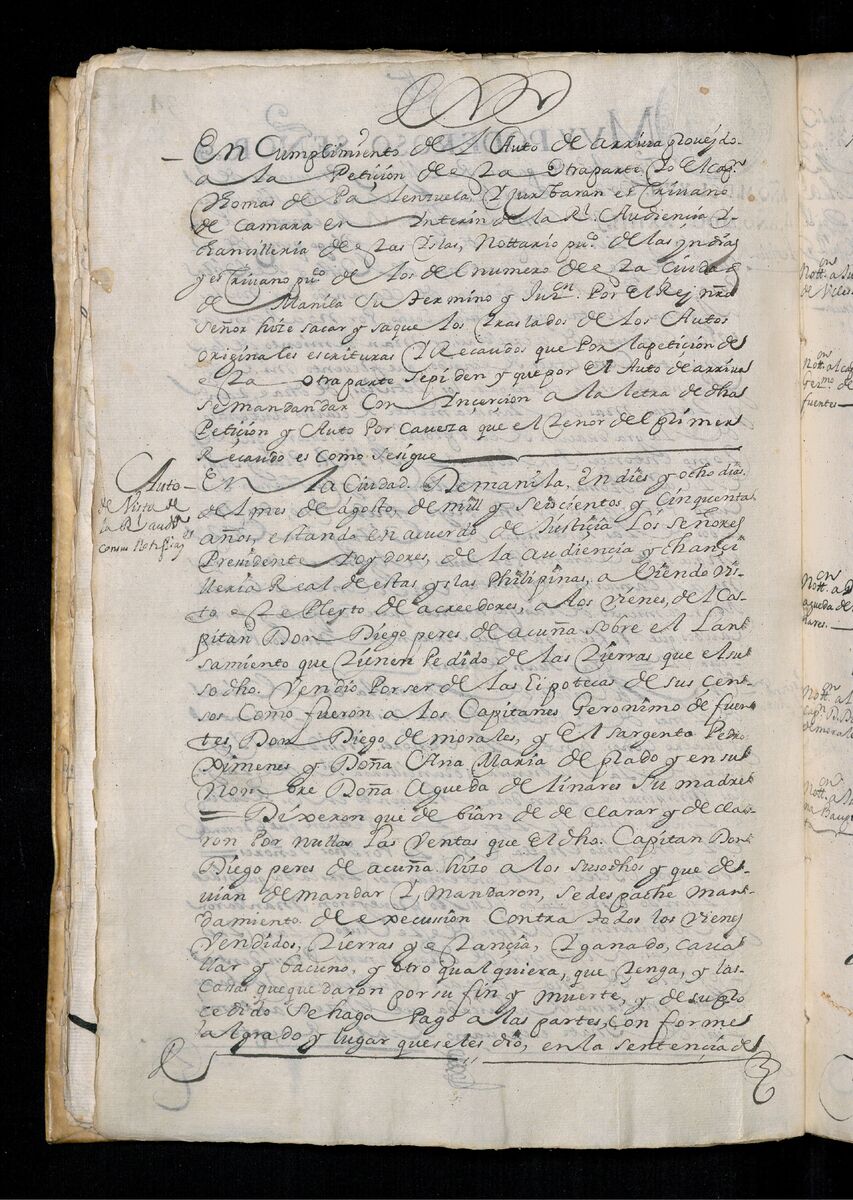 En Cumplimiento del Auto de arriva proveydo
a la Peticion de esta otra parte Yo el Capn.
Thomas de Palenzuela Y Jurbaran escrivano
de Camara en Ynterin de la Rl. Audiencia Y
Chancilleria de estas Yslas, Nottario puco. de las yndias
y escrivano puco. de los del numero de esta Ciudad
de Manila Su termino y Jurn. Por el Rey nro
Señor hize sacar y saque los traslados de los Autos
originales escrituras Y Recaudos que Por la peticion de
esta otra parte se piden y que por el Auto de arriva
se mandan dar Con Yncercion a la letra de dha
Peticion y Auto Por Caveza que el tenor del primer
Recaudo es Como se sigue
Auto
de Vista de
la Rl. audª
con sus Notifines
En la Ciudad De manila, en dies y ocho dias
del mes de agosto, de mill y seiscientos y Cinquenta
años, estando en acuerdo de Justicia Los señores
Presidente Yoydores, de la audiençia y chançi
lleria Real de estas yslas Philipinas, a Viendo vis-
to este Pleyto de acreedores, a los vienes, del Ca-
pitan Don Diego peres de acuña sobre el Lan
samiento que tienen Pedido de las tierras que el su
so dho. Vendio Por ser de las Ipotecas de sus Cen-
sos Como fueron a los Capitanes Geronimo de fuen
tes, Don Diego de morales, y El sargento Pedro
Ximenes y Doña Ana Maria de prado y en su
Nombre Doña Agueda de linares Su madre
= Dixeron que debian de de clarar y de cla
ron Por nullas Las Ventas que El dho. Capitan Don
Diego peres de acuña hizo a los susodhos y que de-
uian de mandar Y, Mandaron, se despache man-
damiento de execussion Contra todos los vienes
Vendidos, tierras y estançia, Y ganado, caua
llar y bacuno, y otro qualquiera, que tenga, y las
Casas que quedaron por su fin y muerte, y de su pro
cedido Se haga Pago a las partes, Con forme
al grado y lugar que se les dio, en la sentençia de